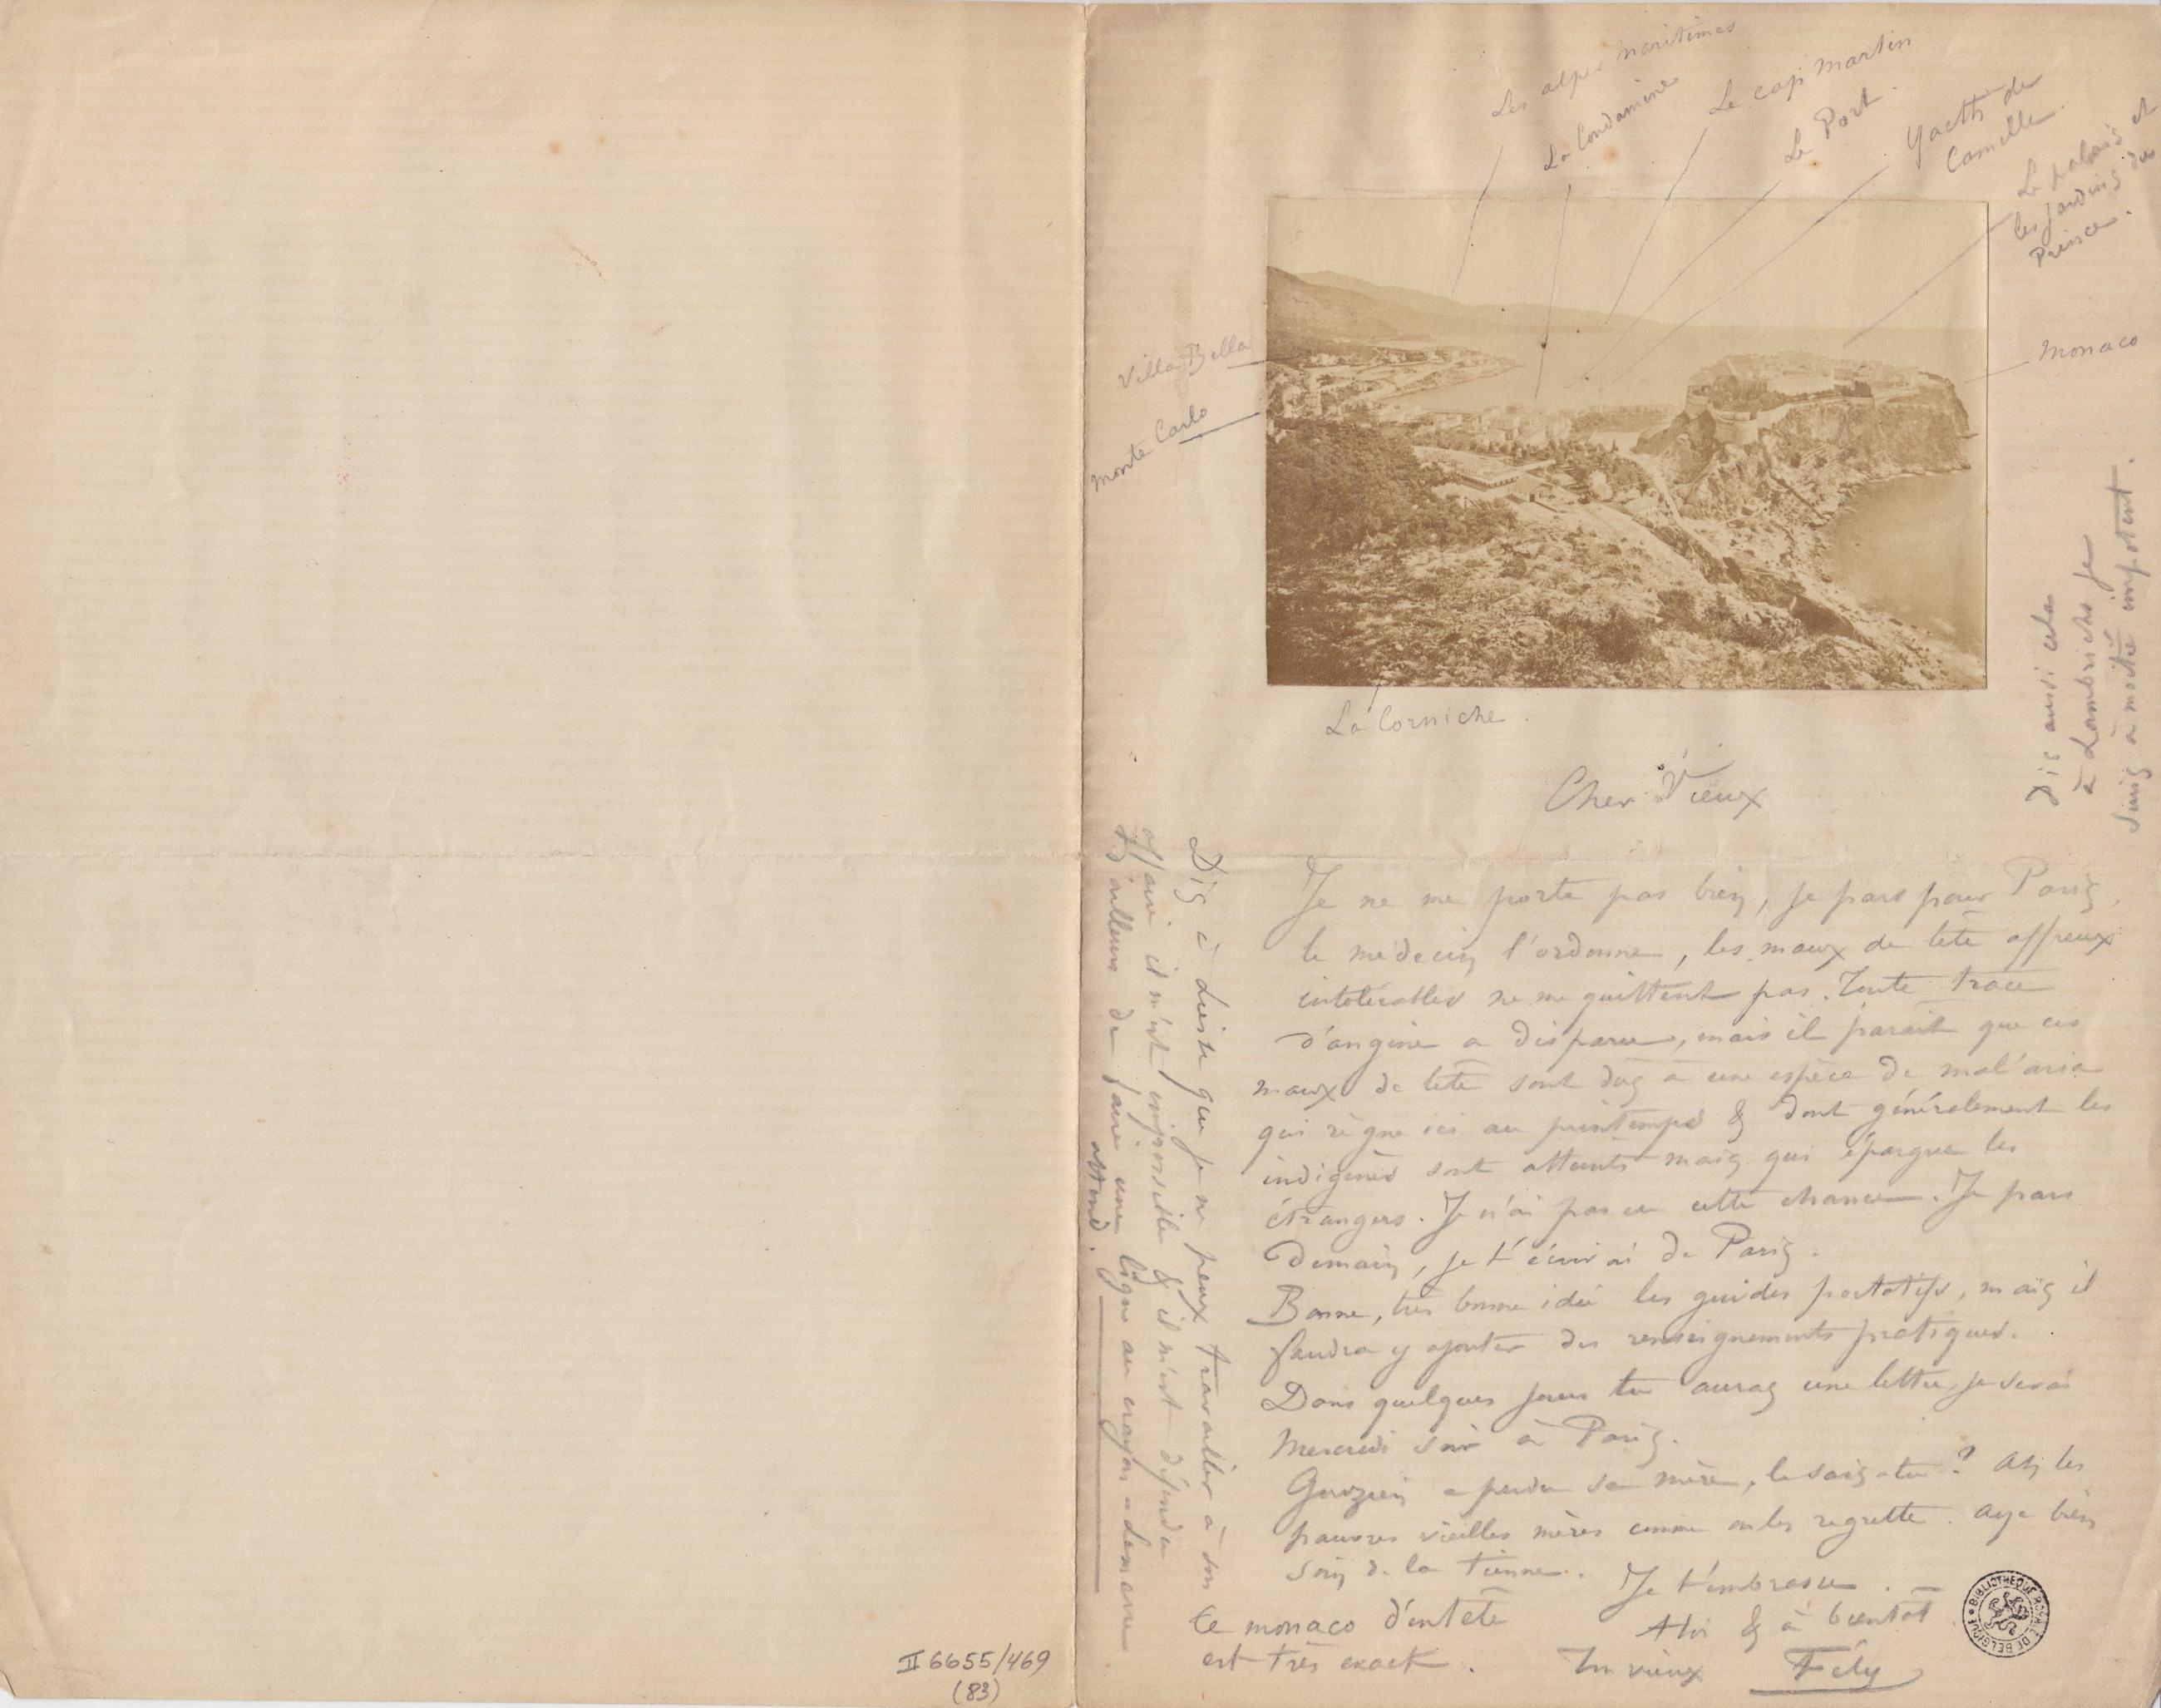 Les alpes maritimes
La Condamine
Le cap Martin
Le Port.
Yacth de
Camille.
Le palais et
les jardins du
Prince.
Villa Bella
Monte Carlo
Monaco
La Corniche.
Dis aussi cela
à Lambrichs je
suis à moitié impotent.
Cher Vieux
Je ne me porte pas bien, je pars pour Paris,
le médecin l'ordonne, les maux de tête affreux
intolérables ne me quittent pas. Toute trace
d'angine a disparu, mais il parait que ces
maux de tête sont dus à une espèce de mal'aria
qui règne ici au printemps & dont généralement les
indigènes sont atteints mais qui épargne les
étrangers. Je n'ai pas eu cette chance. Je pars
demain, je t'écrirai de Paris.
Bonne, très bonne idée les guides portatifs, mais il
faudra y ajouter des renseignements pratiques.
Dans quelques jours tu auras une lettre, je serai
Mercredi soir à Paris.
a perdu sa mère, le sais-tu? Ah les
pauvres vieilles mères comme on les regrette. Aye bien
soin de la tienne. Je t'embrasse.
A toi & à bientôt
Ton vieux Fély
Ce monaco d'entête
est très exact.
Dis à que je ne peux travailler à son
affaire il m'est impossible & il m'est défendu
d'ailleurs de faire une ligne au crayon
attend.
II 6655/469
(83)
BIBLIOTHEQUE ROYALE DE BELGIQUE